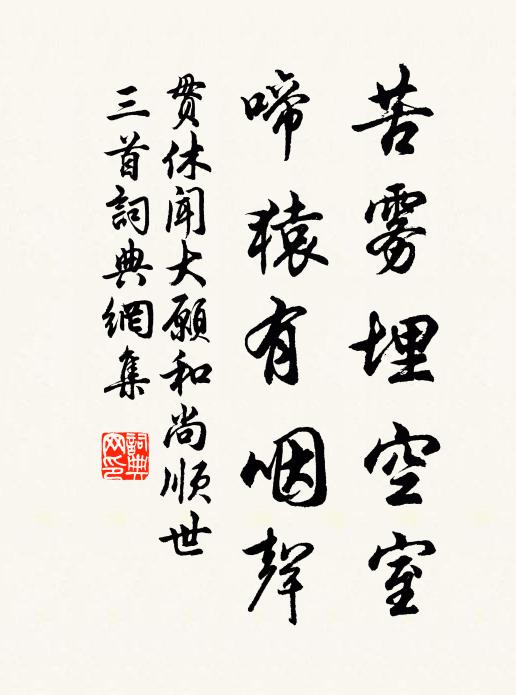 苦雾埋空室
啼猿有咽聲
贯休闻大愿和尚顺世
三首詞典網集
詞典
网印